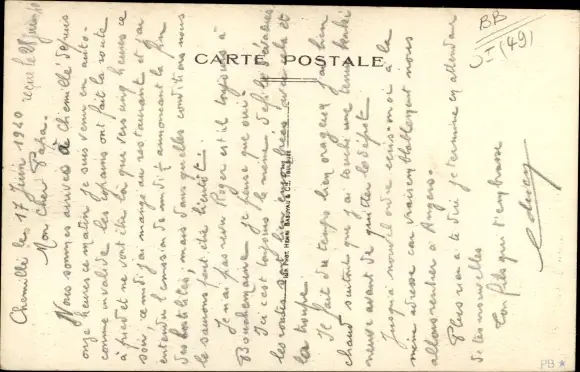 CARTE POSTALE
BB
Chemillé le 17 Juin 1940 reçue le 28 juin 40
Mon Cher Papa.
Nous sommes arrivés à Chemillé depuis
onze heures ce matin je suis venu en auto
comme invalide les copains ont fait la route
à pied et ne vont être là que vers cinq heures ce
soir, ce midi j'ai mangé au restaurant et j'ai
entendu l'émission de midi annonçant la fin
des hostilités; mais dans quelles conditions nous
le saurons peut être bientôt.
Je n'ai pas revu Roger est-il toujours à
Bouchemaine je pense que oui.
Ici c'est toujours le même défilé
les routes sont bien encombrées avec cela et
la troupe
Il fait du temps bien orageux j'ai bien
chaud surtout que j'ai touché une tenue kaki
neuve avant de quitter le dépôt
Jusqu'à nouvel ordre écris-moi à la
même adresse car vraisemblablement nous
allons rentrer à Angers.
Plus rien à te dire je termine en attendant
de tes nouvelles
Ton fils qui t'embrasse
PB